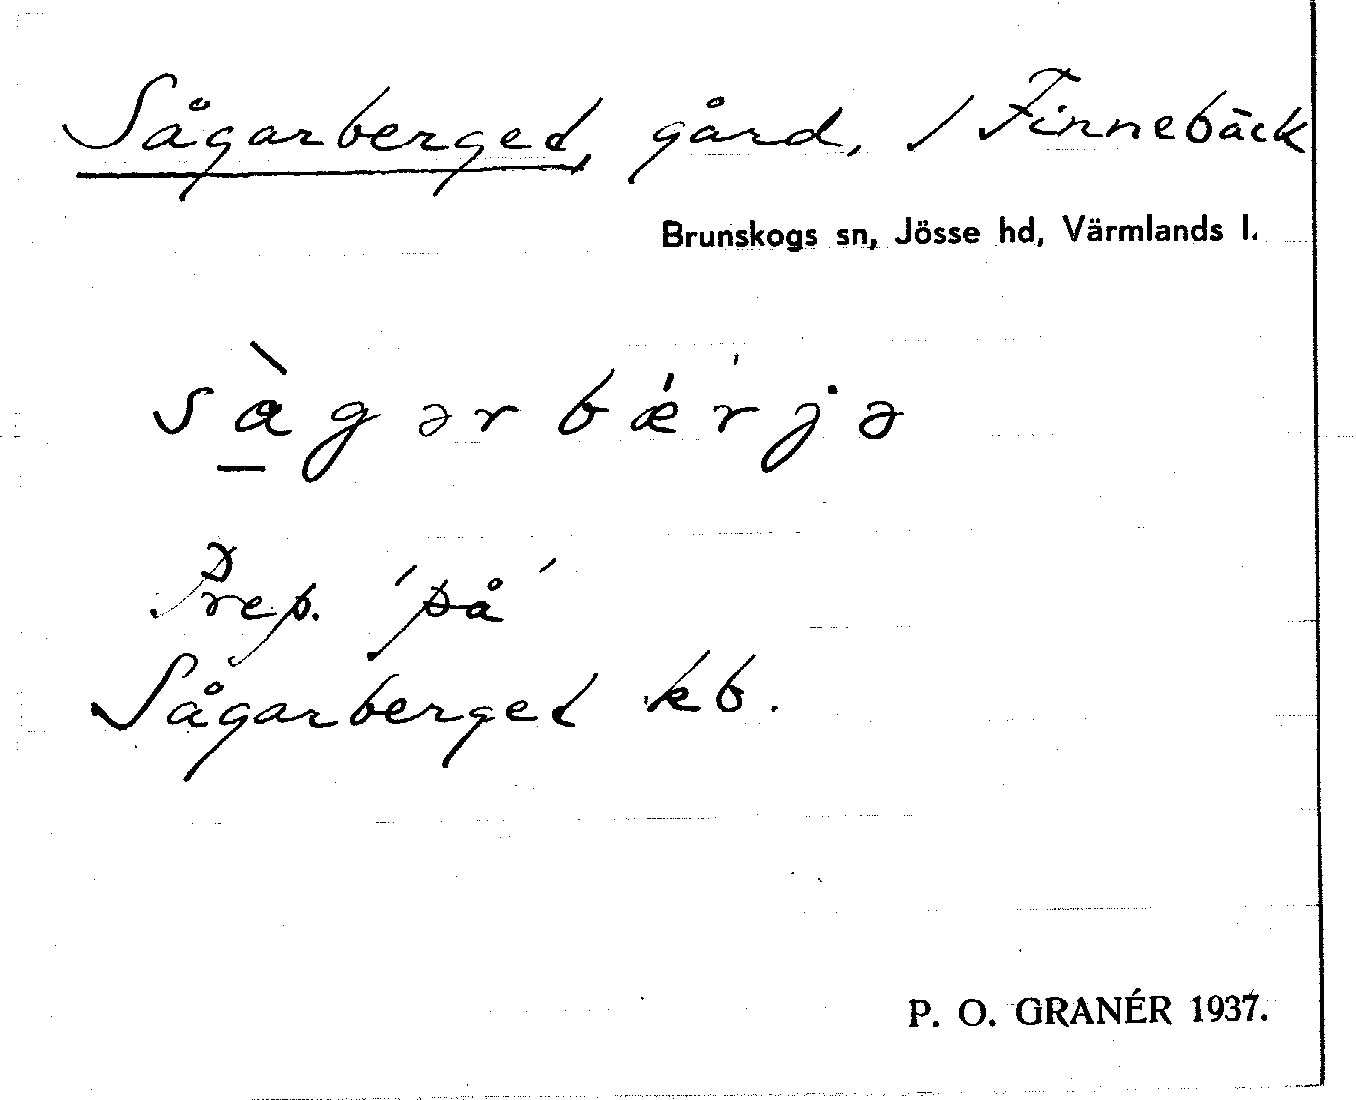 Sågarberget, gård, / Finnebäck
Brunskogs sn, Jösse hd, Värmlands l.
sàgərbǽrjə
Prep. 'på'
Sågarberget kb.
P. O. GRANÉR 1937.